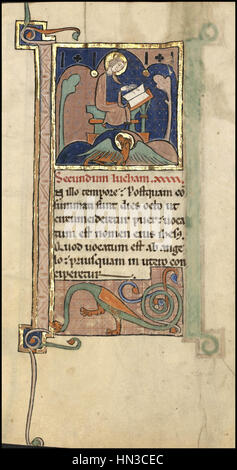 Secundum lucham.
In illo tempore: Postquam cō
summati sunt dies octo ut
circumcideretur puer: voca
tum est nomen eius ihesus
Quod vocatum est ab ange
lo: priusquam in utero con
ciperetur.
alamy
HN3CEC
www.alamy.com